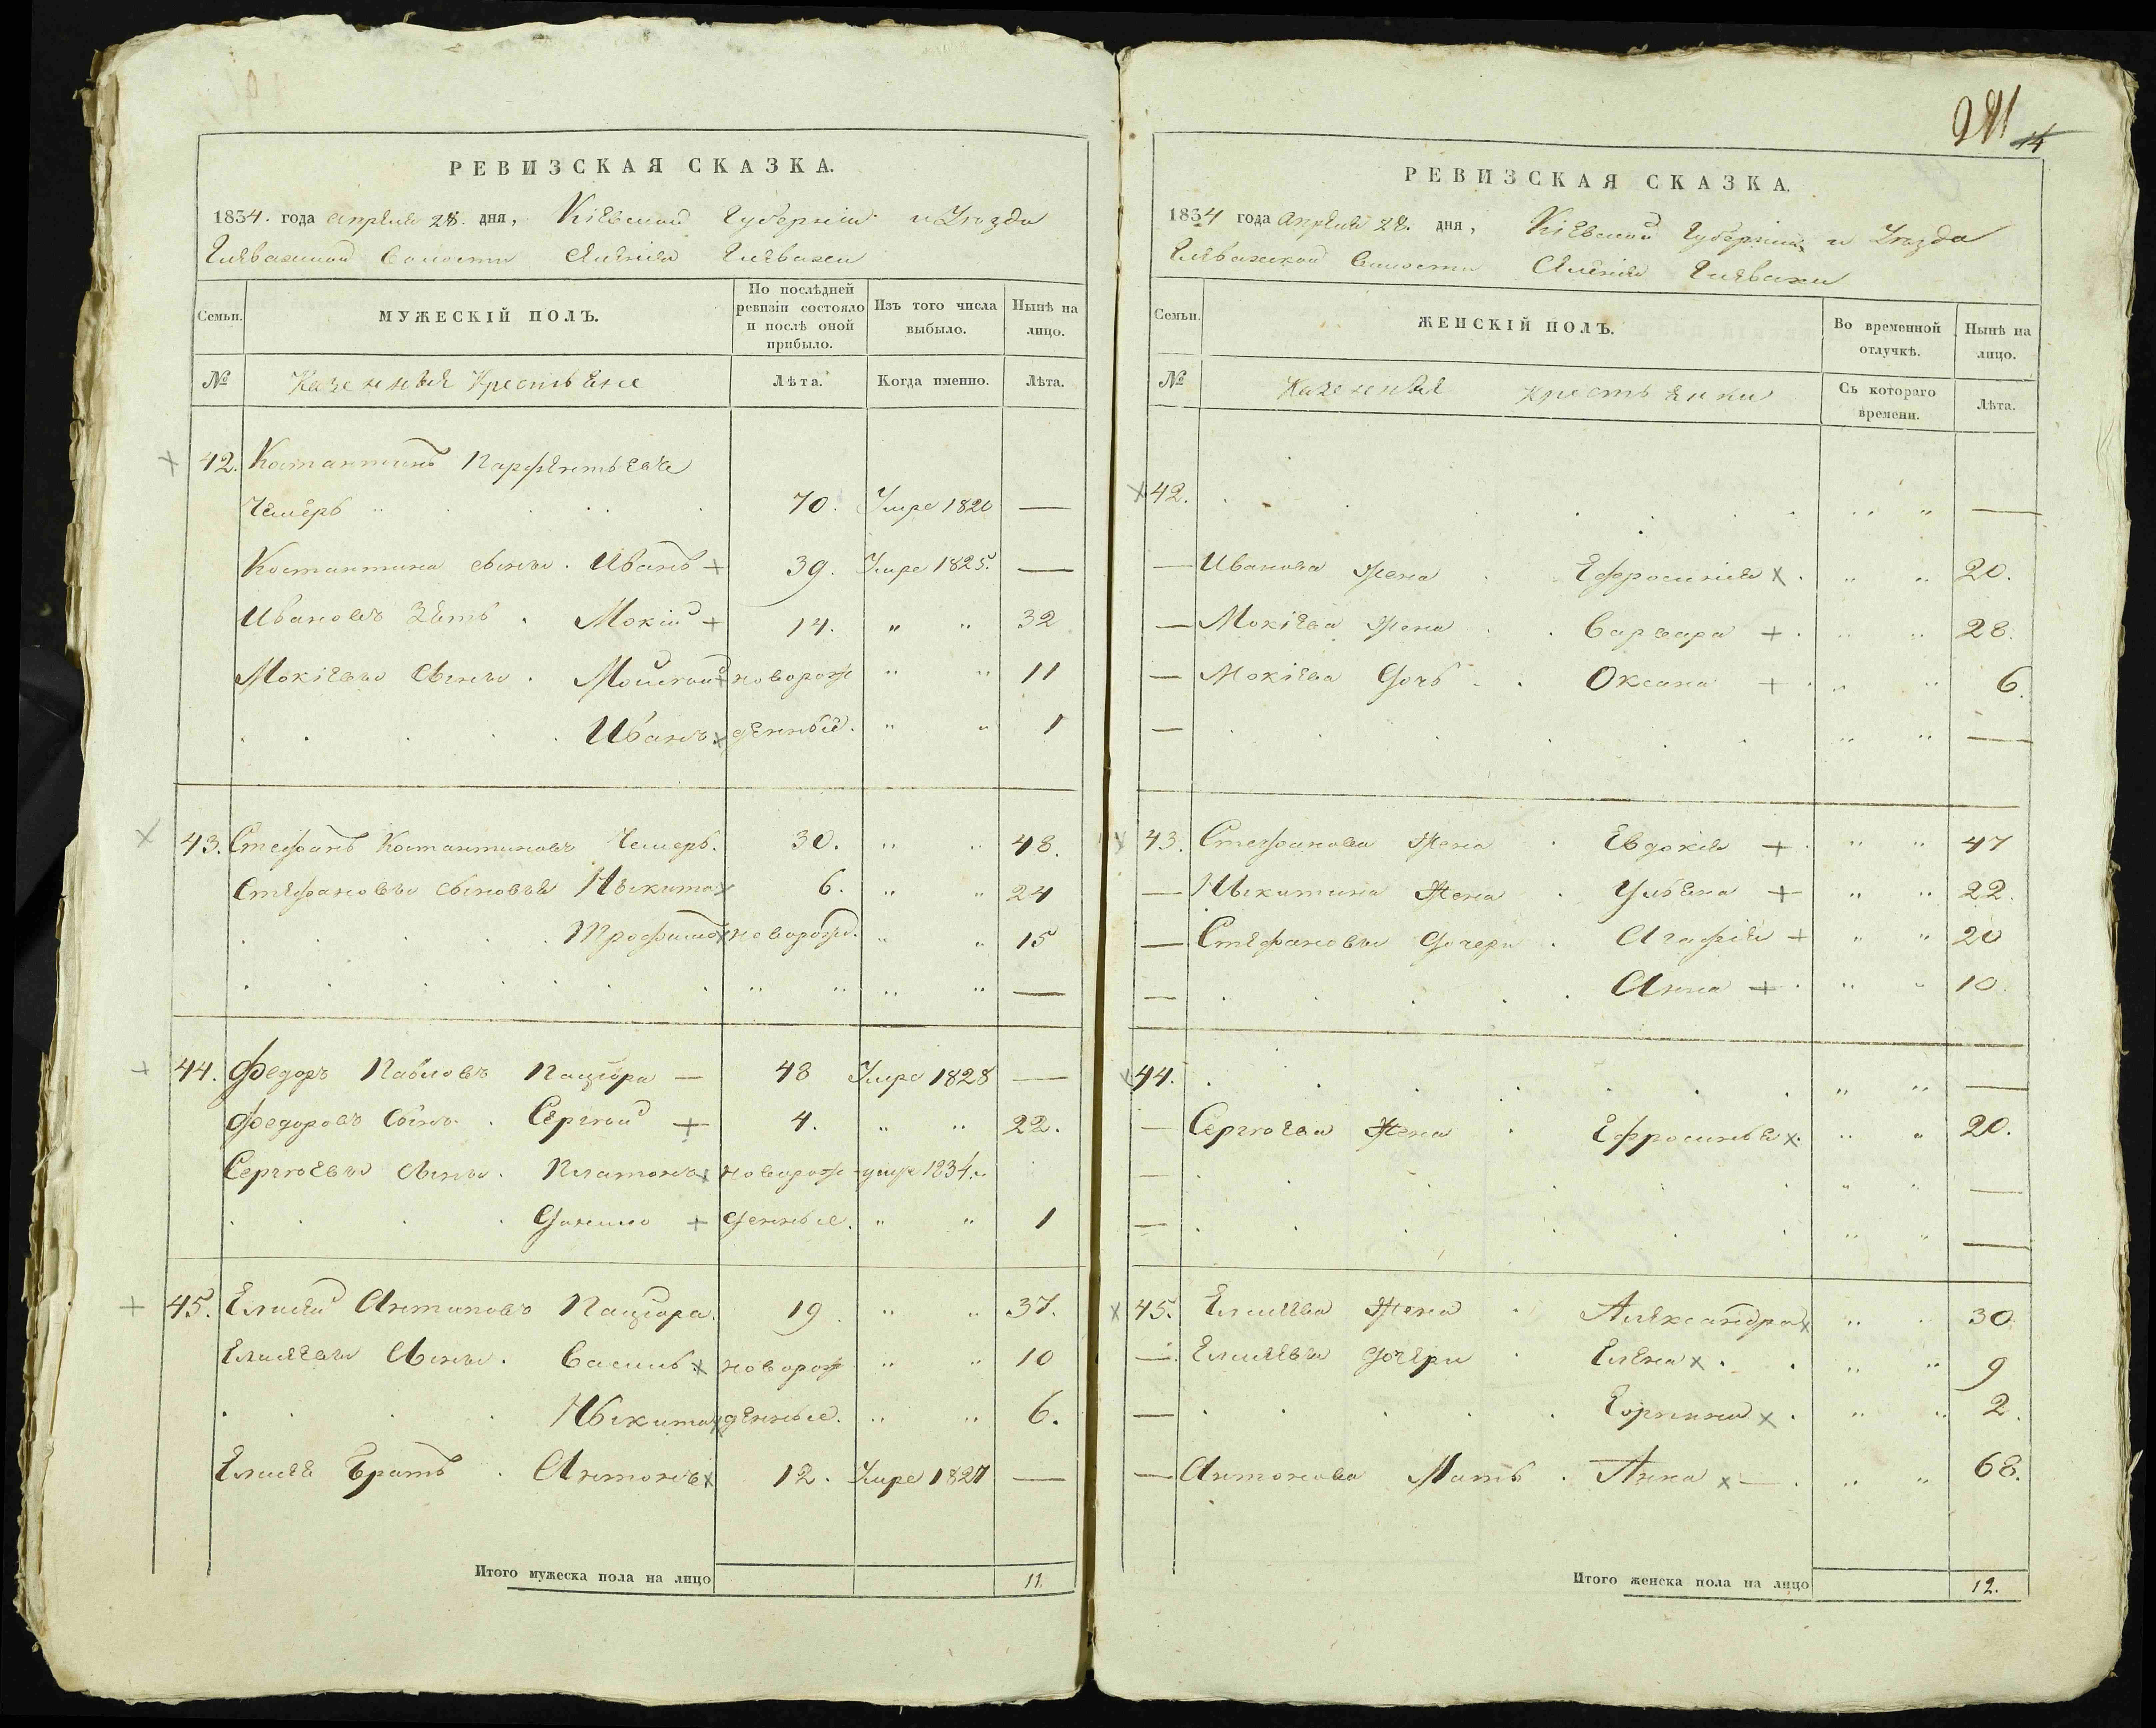 РЕВИЗСКАЯ СКАЗКА.
1834. года апреля 28. дня, Кіевской Губерніи и Уѣзда
Глевахской Волости Селенія Глевахи
Семьи. МУЖЕСКІЙ ПОЛЪ. По послѣдней ревизіи состояло и послѣ оной прибыло. Изъ того числа выбыло. Нынѣ на лицо.
№ Казенныя Крестьяне Лѣта. Когда именно. Лѣта.
42. Костантинъ Парфентьевъ
Чемеръ 70. Умре 1820 —
Костантина сынъ. Иванъ + 39. Умре 1825. —
Ивановъ Зять. Мокій + 14. " " 32
Мокіевы сыны. Мойсей + новорож " " 11
Иванъ. x денный. " " 1
43. Стефанъ Костантиновъ Чемеръ. 30. " " 48.
Стефановы сыновья Ныкита x 6. " " 24
Трофимъ x новорож. " " 15
" " " " —
44. Федоръ Павловъ Пацюра — 48 Умре 1828 —
Федоровъ Сынъ. Сергѣй + 4. " " 22.
Сергѣевы сыны. Платонъ x новорож умре 1834.
Данило + денные. " " 1
45. Елисей Антиповъ Пацюра. 19. " " 37.
Елисеевы Сыны. Василь x новорож " " 10
Ныкита x денные. " " 6.
Елисея Братъ. Антонъ x 12. Умре 1827 —
Итого мужеска пола на лицо 11.
281 14
РЕВИЗСКАЯ СКАЗКА.
1834 года апреля 28. дня, Кіевской Губерніи и Уѣзда
Глевахской Волости Селенія Глевахи
Семьи. ЖЕНСКІЙ ПОЛЪ. Во временной отлучкѣ. Нынѣ на лицо.
№ Казенныя крестьянки Съ котораго времени. Лѣта.
42. " " —
— Иванова Жена. Ефросинія x. " " 20.
— Мокіева Жена. Варвара +. " " 28.
— Мокіева Дочь. Оксана +. " " 6.
— " " —
43. Стефанова Жена. Евдокія +. " " 47
— Ныкитина Жена. Ульяна + " " 22.
— Стефановы Дочери. Агафія + " " 20
— Анна +. " " 10.
44. " " —
— Сергѣева Жена. Ефросинья x. " " 20.
— " " —
— " " —
45. Елисеева Жена. Александра x " " 30.
— Елисеевы Дочери. Елена x. " " 9
— Горпина x. " " 2.
— Антонова Мать. Анна x —. " " 68.
Итого женска пола на лицо 12.